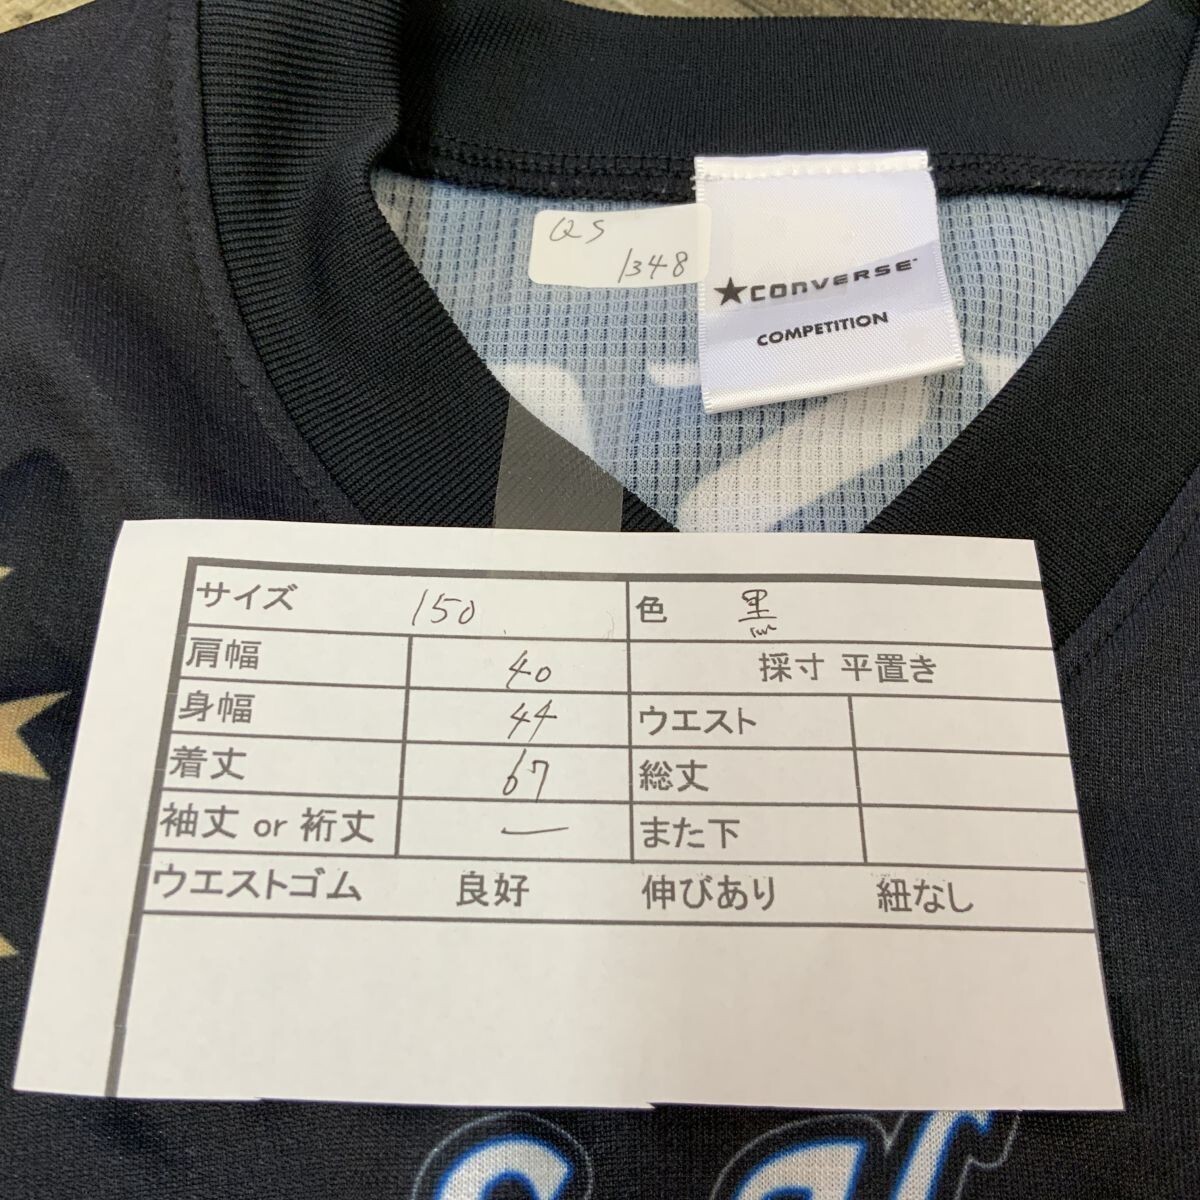 QS
1348
★CONVERSE
COMPETITION
サイズ 150 色 黒
肩幅 40 採寸 平置き
身幅 44 ウエスト
着丈 67 総丈
袖丈 or 裄丈 ー また下
ウエストゴム 良好 伸びあり 紐なし